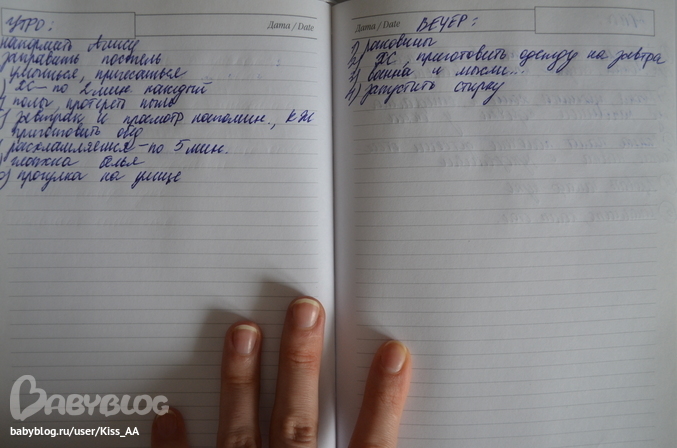 УТРО:
Дата / Date
накормить Алису
заправить постель
умыться, причесаться
) ХС – по 2 мин. каждый
) полы, протереть пыль
) завтрак и просмотр напомин., КЖ
приготовить обед
) расхламляемся – по 5 мин.
) глажка белья
0) прогулка на улице
Дата / Date
ВЕЧЕР:
1) раковины
2) ХС, приготовить одежду на завтра
3) ванна и мысли...
4) запустить стирку
BABYBLOG
babyblog.ru/user/Kiss_AA